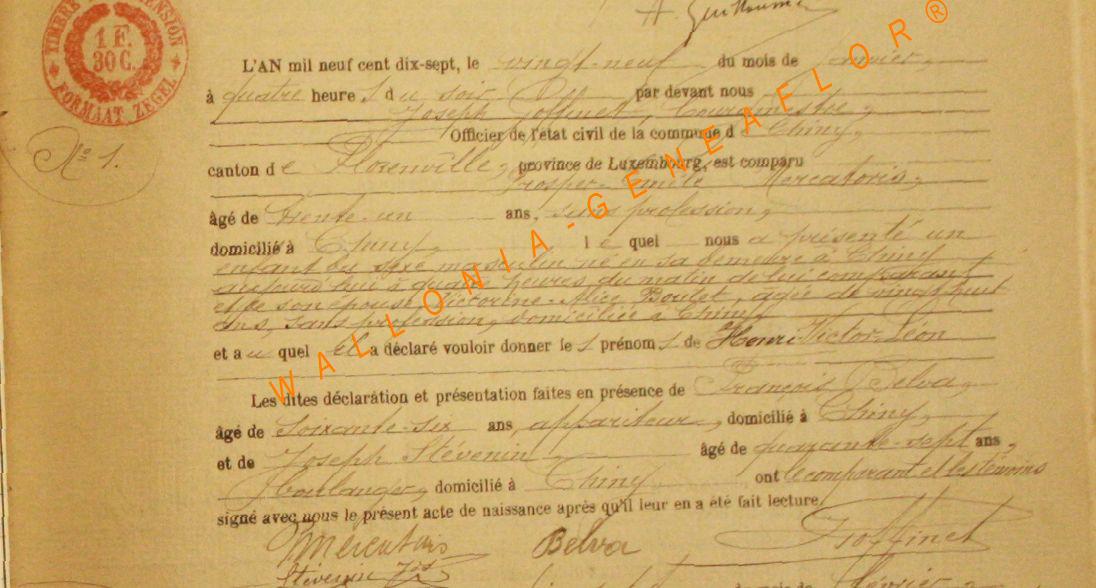 A. Guillaume
TIMBRE DIMENSION
1 F.
30 C.
FORMAAT ZEGEL
L'AN mil neuf cent dix-sept, le vingt-neuf du mois de janvier,
à quatre heures du soir par devant nous
Joseph Joffinet, Bourgmestre,
Officier de l'état civil de la commune de Chiny,
N° 1.
canton de Florenville, province de Luxembourg, est comparu
Prosper-Emile Mercatoris,
âgé de trente-un ans, sans profession,
domicilié à Chiny, lequel nous a présenté un
enfant du sexe masculin né en sa demeure à Chiny
aujourd'hui à quatre heures du matin de lui comparant
et de son épouse Victorine-Alice Boulet, agée de vingt-huit
ans, sans profession, domiciliée à Chiny,
et auquel il a déclaré vouloir donner les prénoms de Henri-Victor-Léon
Les dites déclaration et présentation faites en présence de François Belva,
âgé de soixante-six ans, appariteur, domicilié à Chiny,
et de Joseph Stévenin âgé de quarante-sept ans,
boulanger, domicilié à Chiny ont le comparant et les témoins
signé avec nous le présent acte de naissance après qu'il leur en a été fait lecture.
Mercatoris Belva Joffinet
Stévenin Jos
du mois de février
WALLONIA-GENEAFLOR®